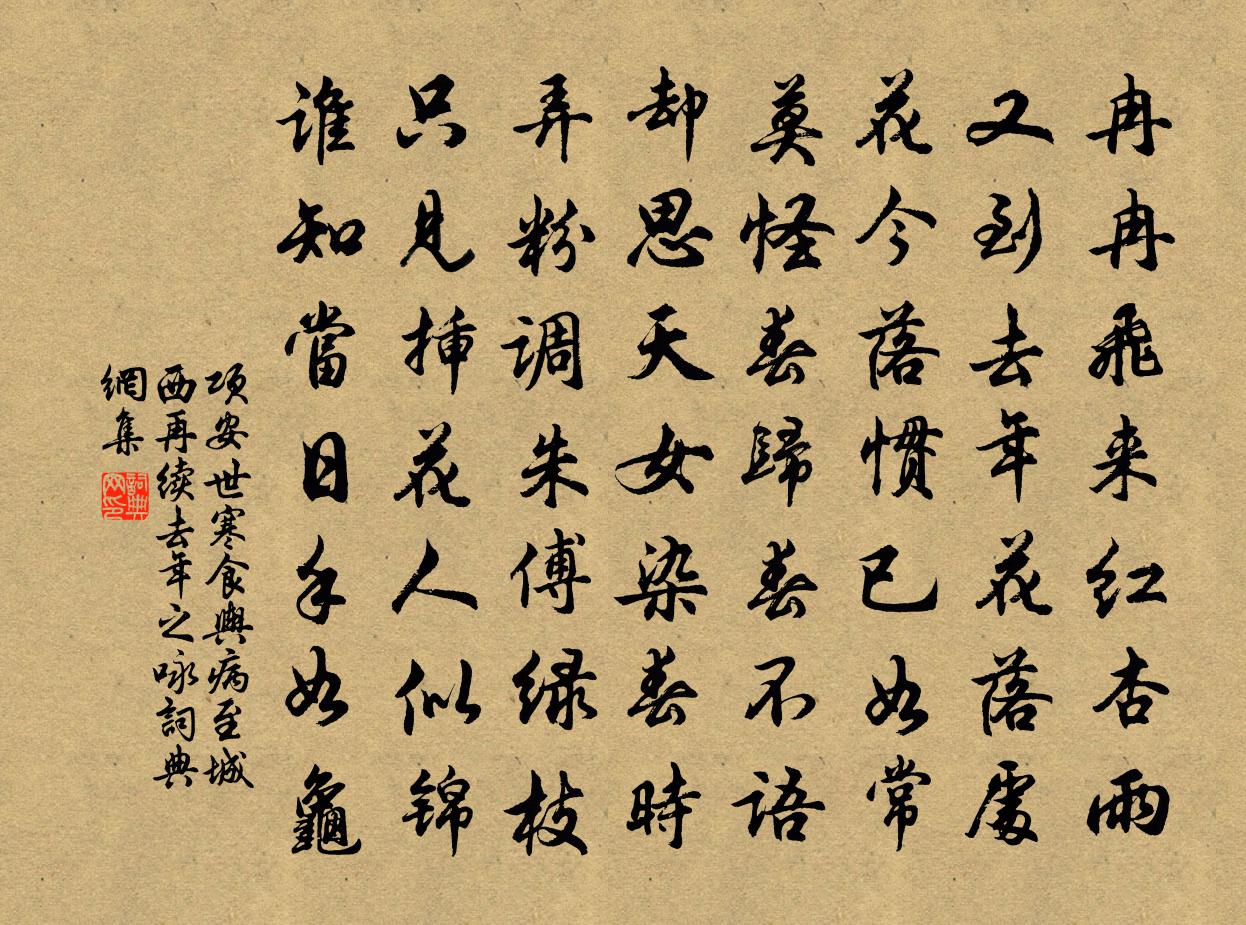 冉冉飛来红杏雨
又到去年花落處
花今落惯已如常
莫怪春歸春不語
却思天女染春時
弄粉调朱傅绿枝
只见插花人似锦
谁知當日手如龜
项安世寒食輿病至城
西再續去年之咏詞典
網集
詞典網印